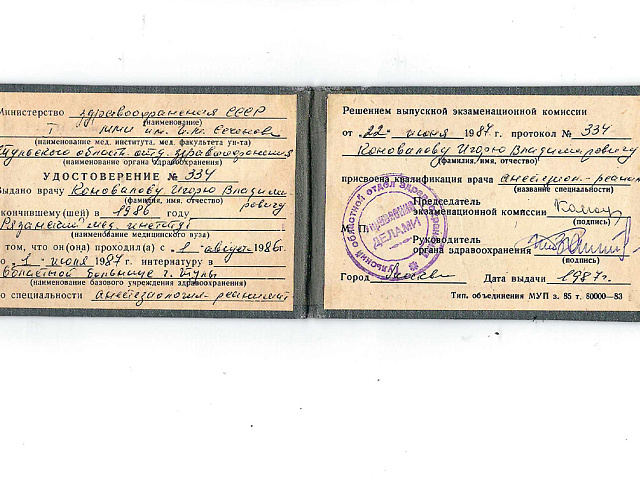 Министерство здравоохранения СССР
(наименование)
I ММИ им. И.М. Сеченова
(наименование мед. института, мед. факультета ун-та)
Тульского област. отд. здравоохранения
(наименование органа здравоохранения)
УДОСТОВЕРЕНИЕ № 334
Выдано врачу Коновалову Игорю Владими-
(фамилия, имя, отчество)
ровичу
окончившему(шей) в 1986 году
Рязанский мед. институт
(наименование медицинского вуза)
в том, что он(она) проходил(а) с „1" август 1986г.
по „1" июня 1987 г. интернатуру в
Областной больнице г. Тулы
(наименование базового учреждения здравоохранения)
по специальности анестезиология-реанимат
Решением выпускной экзаменационной комиссии
от „22" июня 1987 г. протокол № 334
Коновалову Игорю Владимировичу
(фамилия, имя, отчество)
присвоена квалификация врача анестезиол-реаним
(название специальности)
Председатель
экзаменационной комиссии
(подпись)
М. П.
Руководитель
органа здравоохранения
(подпись)
Город Москва Дата выдачи 1987г.
Тип. объединения МУП з. 85 т. 80000—83
ТУЛЬСКИЙ ОБЛАСТНОЙ ОТДЕЛ ЗДРАВООХРАНЕНИЯ
УПРАВЛЕНИЕ
ДЕЛАМИ